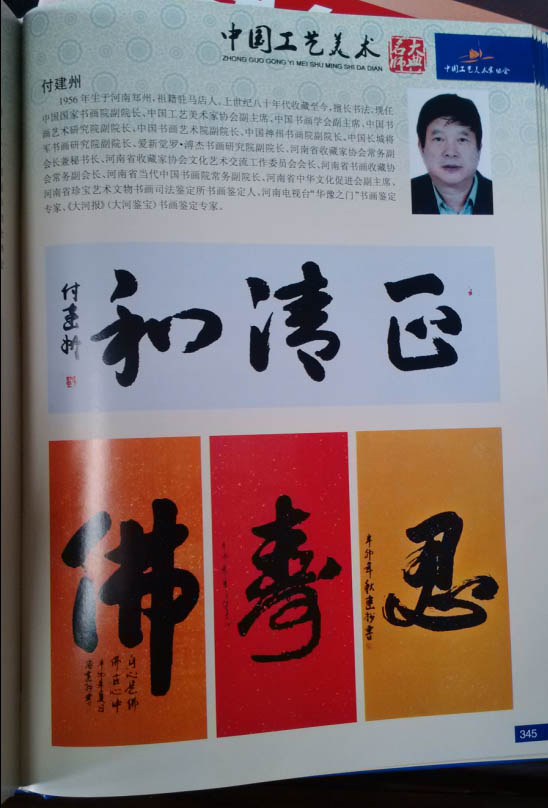 中国工艺美术
大典
名师
ZHONG GUO GONG YI MEI SHU MING SHI DA DIAN
中国工艺美术家协会
付建州
1956年生于河南郑州,祖籍驻马店人,上世纪八十年代收藏至今,擅长书法,现任
中国国家书画院副院长、中国工艺美术家协会副主席、中国书画学会副主席、中国书
画艺术研究院副院长、中国书画艺术院副院长、中国神州书画院副院长、中国长城将
军书画研究院副院长、爱新觉罗·溥杰书画研究院副院长、河南省收藏家协会常务副
会长兼秘书长、河南省收藏家协会文化艺术交流工作委员会会长、河南省书画收藏协
会常务副会长、河南省当代中国书画院常务副院长、河南省中华文化促进会副主席、
河南省珍宝艺术文物书画司法鉴定所书画鉴定人、河南电视台“华豫之门”书画鉴定
专家、《大河报》《大河鉴宝》书画鉴定专家。
正清和
付建州
忍
辛卯年秋建州书
寿
佛
佛在心中
345